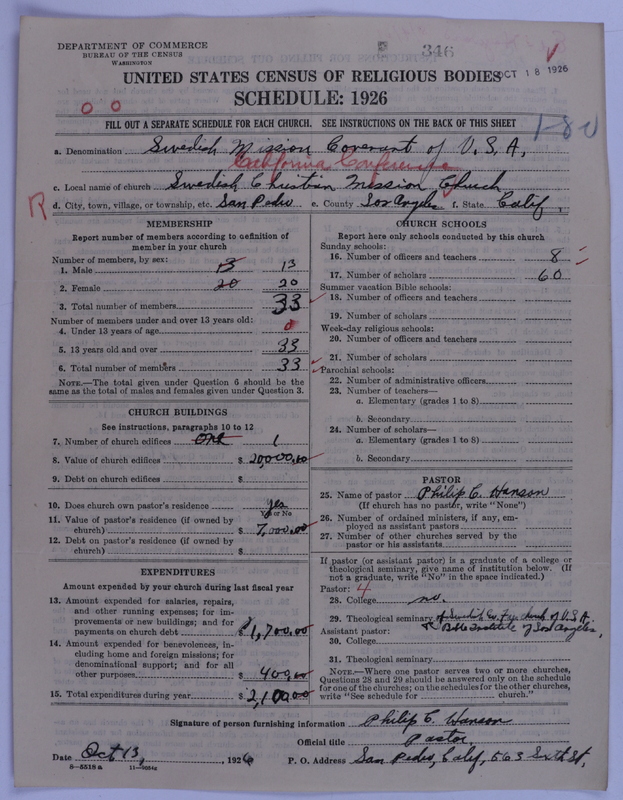 DEPARTMENT OF COMMERCE
BUREAU OF THE CENSUS
WASHINGTON
346
OCT 18 1926
UNITED STATES CENSUS OF RELIGIOUS BODIES
SCHEDULE: 1926
0 0
FILL OUT A SEPARATE SCHEDULE FOR EACH CHURCH. SEE INSTRUCTIONS ON THE BACK OF THIS SHEET
180
a. Denomination Swedish Mission Covenant of U.S.A.
California Conference
c. Local name of church Swedish Christian Mission Church
R
d. City, town, village, or township, etc. San Pedro e. County Los Angeles f. State Calif.
MEMBERSHIP
Report number of members according to definition of
member in your church
Number of members, by sex:
1. Male 13 13
2. Female 20 20
3. Total number of members 33
Number of members under and over 13 years old:
4. Under 13 years of age 0
5. 13 years old and over 33
6. Total number of members 33
NOTE.—The total given under Question 6 should be the
same as the total of males and females given under Question 3.
CHURCH BUILDINGS
See instructions, paragraphs 10 to 12
7. Number of church edifices One 1
8. Value of church edifices $ 20,000.00
9. Debt on church edifices $
10. Does church own pastor's residence Yes
Yes or No
11. Value of pastor's residence (if owned by
church) $ 7,000.00
12. Debt on pastor's residence (if owned by
church) $
EXPENDITURES
Amount expended by your church during last fiscal year
13. Amount expended for salaries, repairs,
and other running expenses; for im-
provements or new buildings; and for
payments on church debt $ 1,700.00
14. Amount expended for benevolences, in-
cluding home and foreign missions; for
denominational support; and for all
other purposes $ 400.00
15. Total expenditures during year $ 2,100.00
CHURCH SCHOOLS
Report here only schools conducted by this church
Sunday schools:
16. Number of officers and teachers 8
17. Number of scholars 60
Summer vacation Bible schools:
18. Number of officers and teachers
19. Number of scholars
Week-day religious schools:
20. Number of officers and teachers
21. Number of scholars
Parochial schools:
22. Number of administrative officers
23. Number of teachers—
a. Elementary (grades 1 to 8)
b. Secondary
24. Number of scholars—
a. Elementary (grades 1 to 8)
b. Secondary
PASTOR
25. Name of pastor Philip C. Hanson
(If church has no pastor, write "None")
26. Number of ordained ministers, if any, em-
ployed as assistant pastors
27. Number of other churches served by the
pastor or his assistants
If pastor (or assistant pastor) is a graduate of a college or
theological seminary, give name of institution below. (If
not a graduate, write "No" in the space indicated.)
Pastor: 4
28. College no.
29. Theological seminary of Swedish Ev. Free church of U.S.A.
Assistant pastor: Bible Institute of Los Angeles,
30. College
31. Theological seminary
NOTE.—Where one pastor serves two or more churches,
Questions 28 and 29 should be answered only on the schedule
for one of the churches; on the schedules for the other churches,
write "See schedule for church."
Signature of person furnishing information Philip C. Hanson
Official title Pastor,
Date Oct 13, 1926 P. O. Address San Pedro, Calif, 563 Sixth St,
8—5518 a